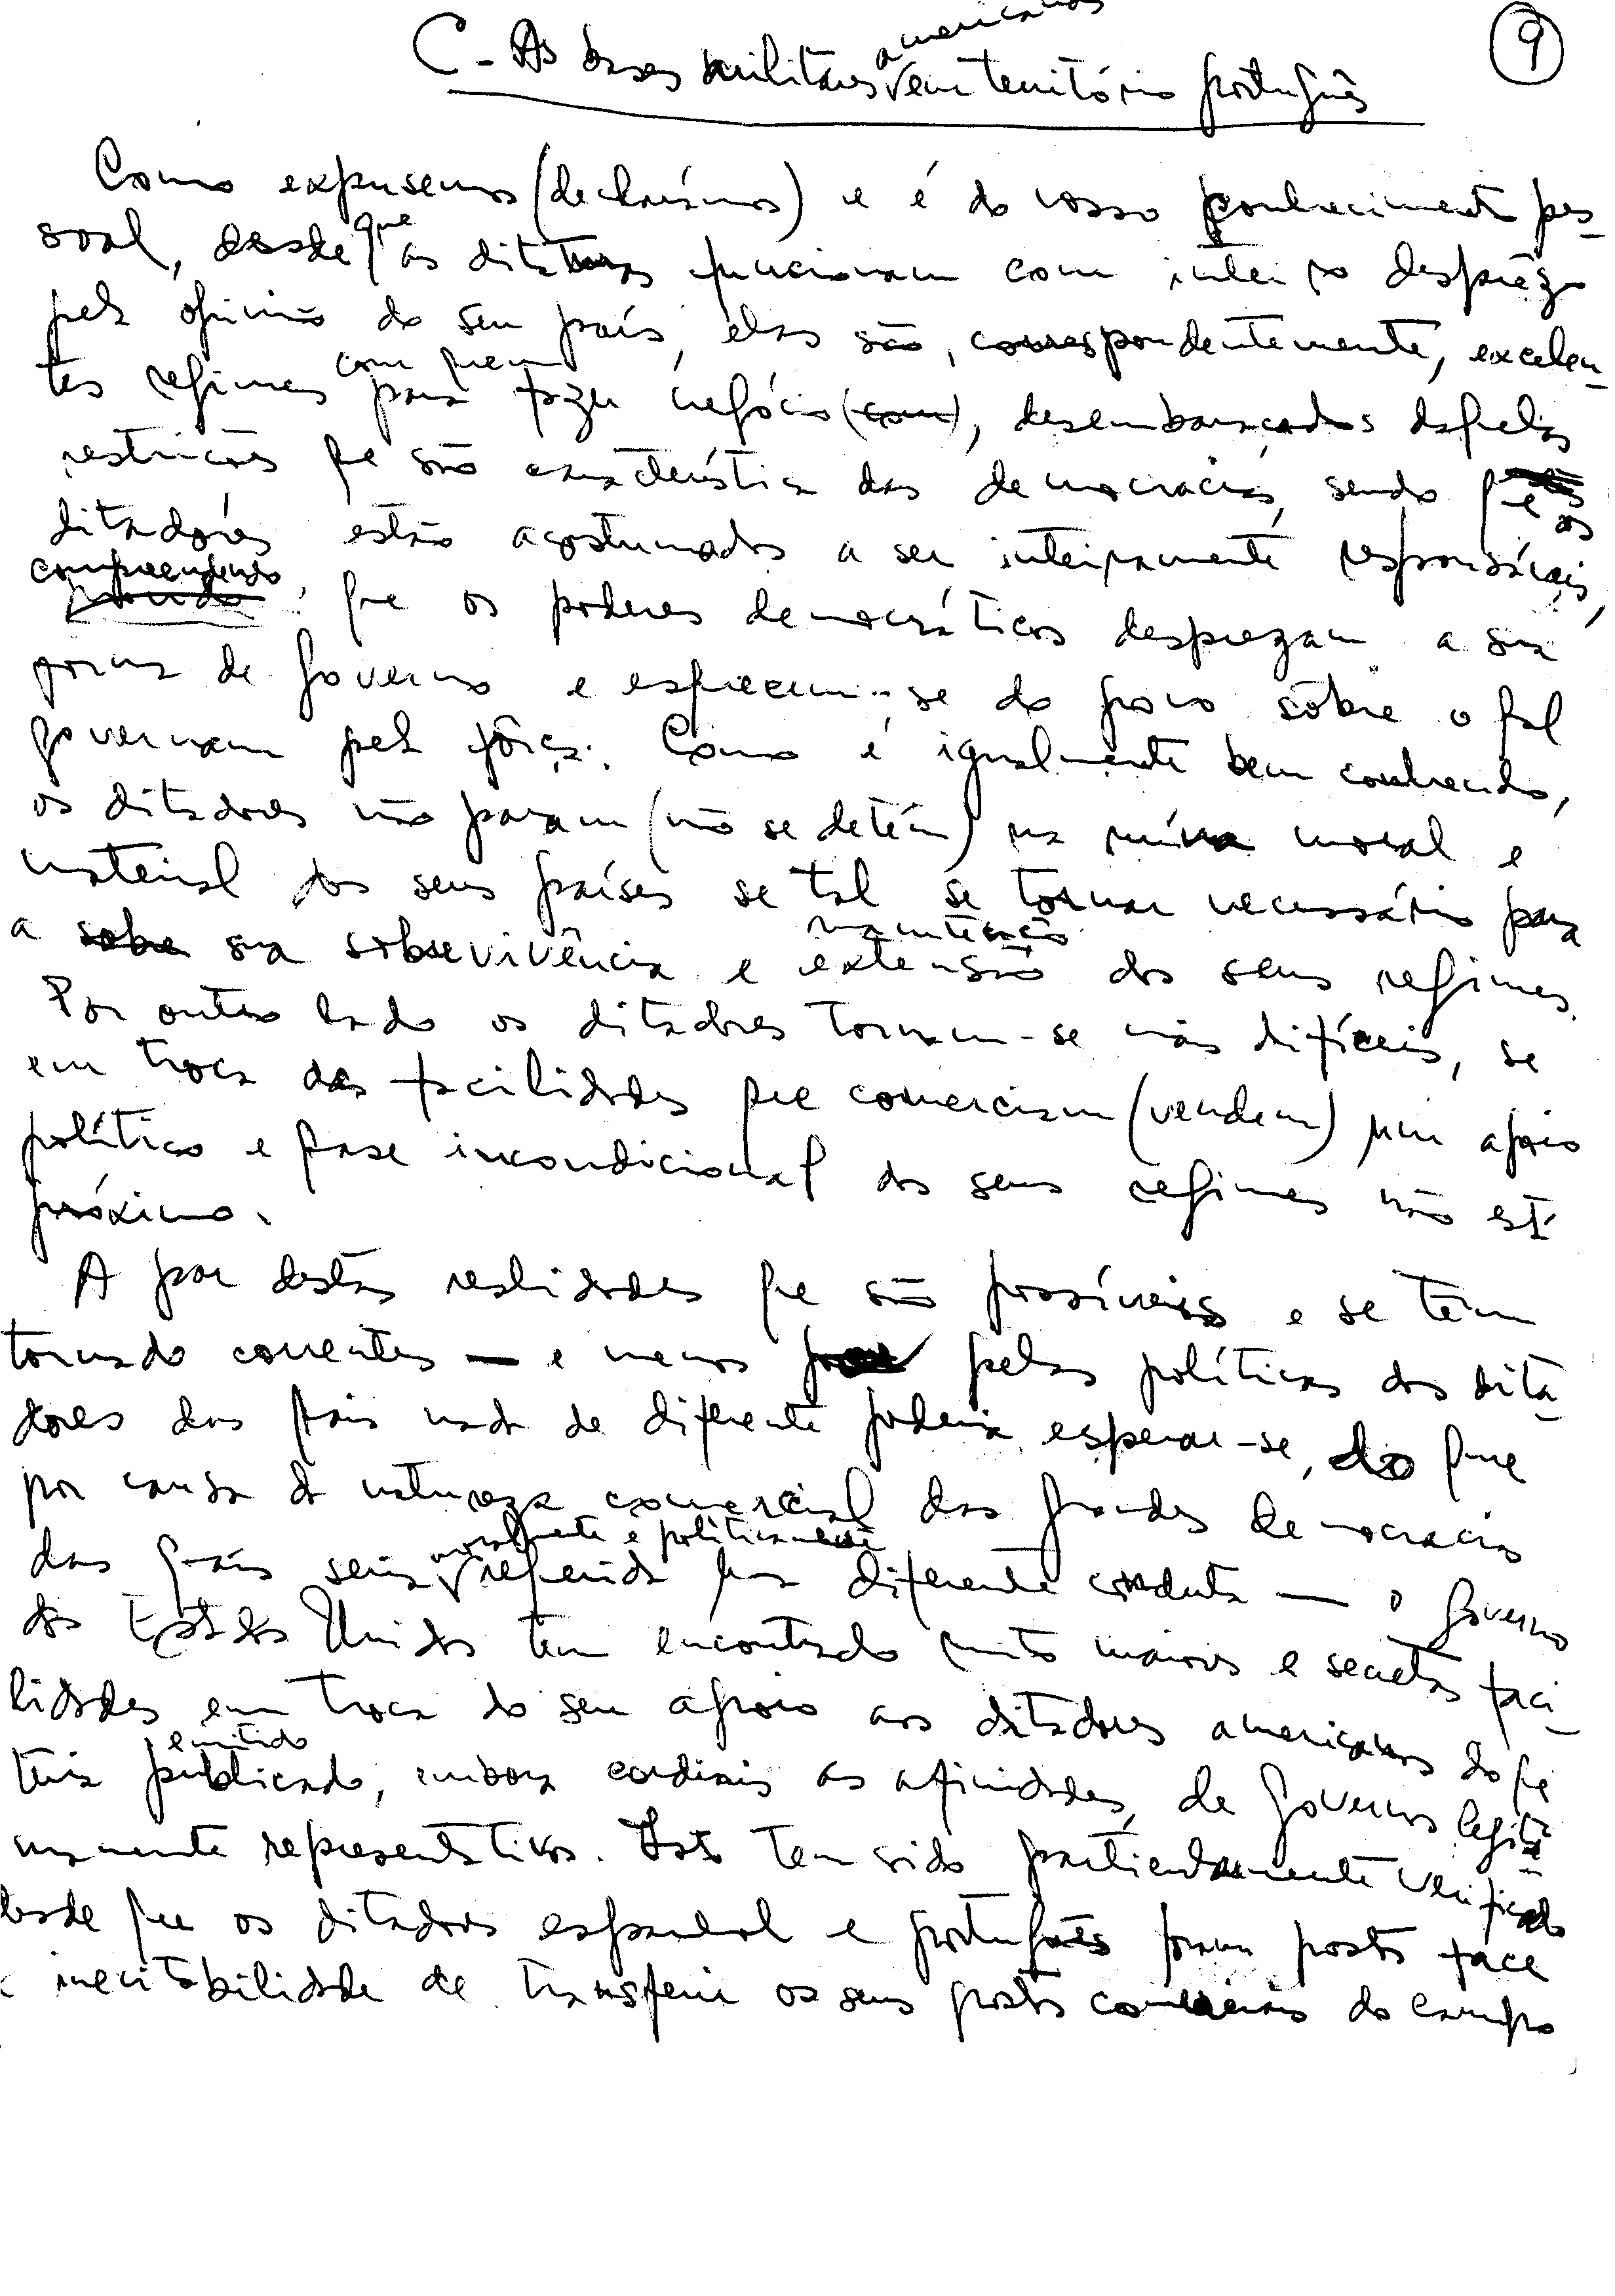 americanas
C - As bases militares em território português
9
Como expusemos (declarámos) e é do vosso conhecimento pes-
soal, desde que as ditaduras funcionam com inteiro desprêzo
pela opinião do seu país, elas são, correspondentemente, excelen-
tes regimes para fazer negócio (com), desembaraçados daquelas
com quem
restrições que são característica das democracias, sendo que os
ditadores estão acostumados a ser inteiramente responsáveis,
compreendendo que os poderes democráticos desprezam a sua
forma de govêrno e esquecem-se do povo sôbre o qual
governam pela fôrça. Como é igualmente bem conhecido,
os ditadores não param (não se detém) na ruína moral e
material dos seus países se tal se tornar necessário para
a sobre sua sobrevivência e extensão dos seus regimes.
manutenção
Por outro lado os ditadores tornam-se mais difíceis, se
em troca das facilidades que comerciam (vendem) um apoio
político e quase incondicional dos seus regimes não está
próximo.
A par destas realidades que são possíveis e se têm
tornado correntes — e menos pelas políticas dos dita-
dores das quais nada de diferente poderia esperar-se, do que
por causa da natureza comercial das grandes democracias
das quais seria preferida uma diferente conduta — o govêrno
moralmente e politicamente
dos Estados Unidos tem encontrado muito maiores e secretas faci-
lidades em troca do seu apoio aos ditadores americanos do que
teria publicado, embora cordiais as afinidades, de governos legiti-
emitido
mamente representativos. Isto tem sido particularmente verificado
desde que os ditadores espanhol e português foram postos face
à inevitabilidade de transferir os seus postos comerciais do campo